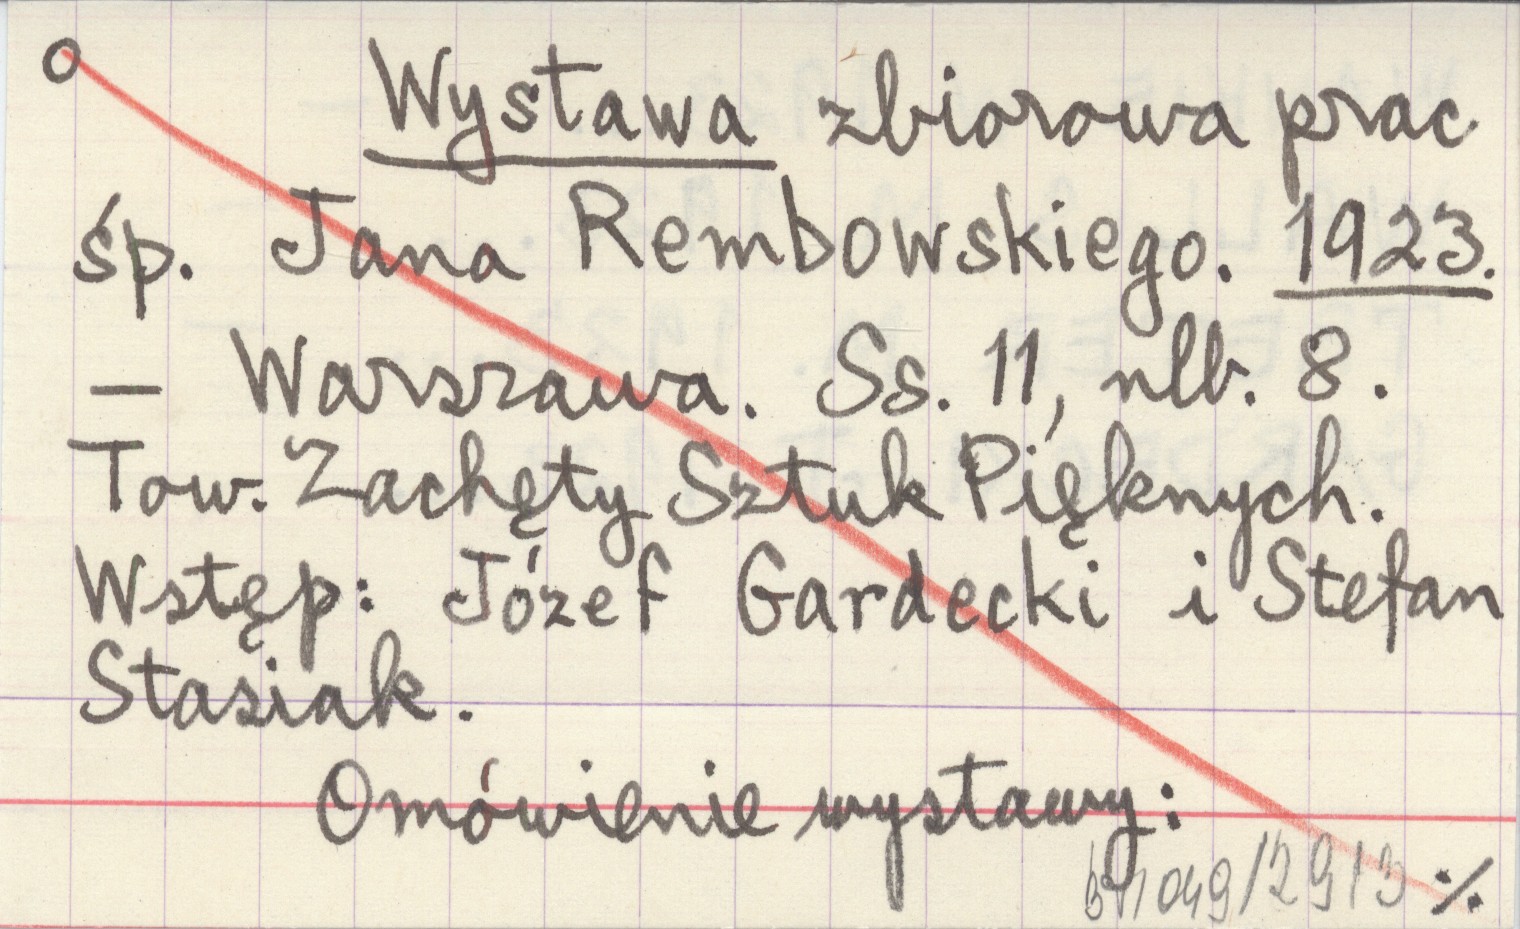 Wystawa zbiorowa prac
śp. Jana Rembowskiego. 1923.
— Warszawa. Ss. 11, nlb. 8.
Tow. Zachęty Sztuk Pięknych.
Wstęp: Józef Gardecki i Stefan
Stasiak.
Omówienie wystawy:
049/2913 ·/.